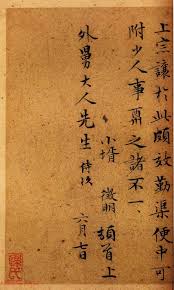 上宗讓於此頗放勤渠便中可
附少人事之諸不一一
小壻徵明頓首上
外舅大人先生侍次
六月七日